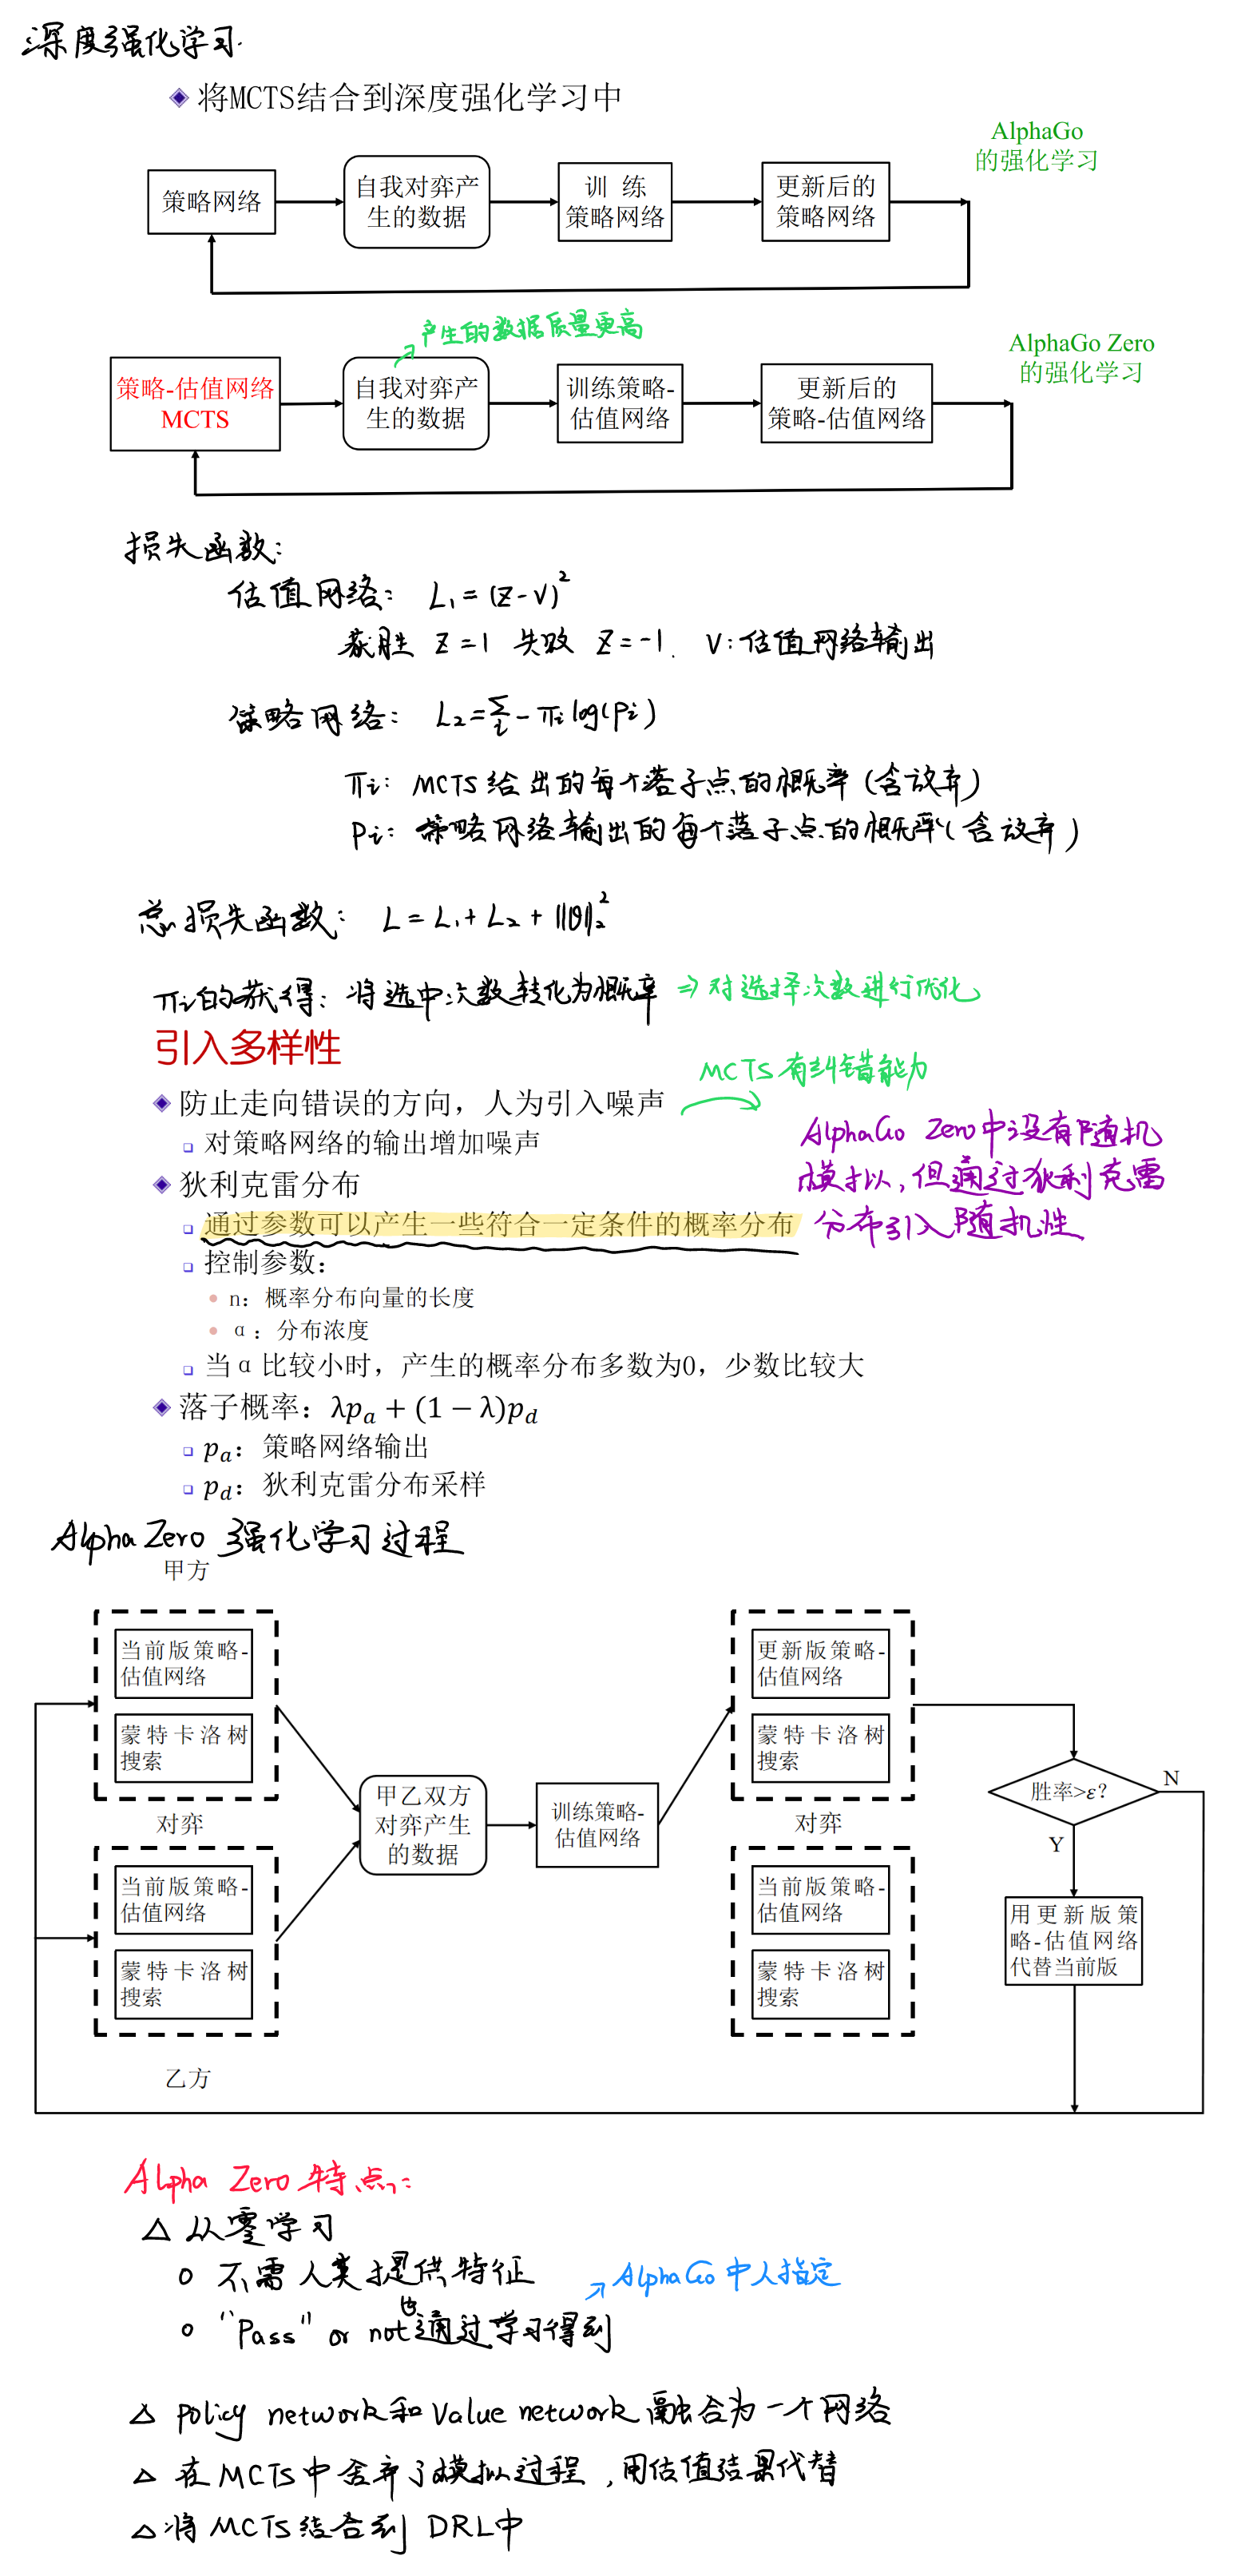 深度强化学习
将MCTS结合到深度强化学习中
AlphaGo
的强化学习
策略网络
自我对弈产
生的数据
训 练
策略网络
更新后的
策略网络
产生的数据质量更高
AlphaGo Zero
的强化学习
策略-估值网络
MCTS
自我对弈产
生的数据
训练策略-
估值网络
更新后的
策略-估值网络
损失函数:
估值网络: L₁=(z-v)²
获胜 z=1 失败 z=-1. v:估值网络输出
策略网络: L₂=∑ᵢ-πᵢlog(pᵢ)
πᵢ: MCTS给出的每个落子点的概率(含放弃)
pᵢ: 策略网络输出的每个落子点的概率(含放弃)
总损失函数: L=L₁+L₂+||θ||₂²
πᵢ的获得: 将选中次数转化为概率 ⇒对选择次数进行优化
引入多样性
MCTS有纠错能力
防止走向错误的方向，人为引入噪声
对策略网络的输出增加噪声
AlphaGo Zero中没有随机
模拟,但通过狄利克雷
分布引入随机性
狄利克雷分布
通过参数可以产生一些符合一定条件的概率分布
控制参数：
n：概率分布向量的长度
α：分布浓度
当α比较小时，产生的概率分布多数为0，少数比较大
落子概率：λpₐ + (1 − λ)p_d
pₐ：策略网络输出
p_d：狄利克雷分布采样
AlphaZero 强化学习过程
甲方
当前版策略-
估值网络
蒙特卡洛树
搜索
对弈
当前版策略-
估值网络
蒙特卡洛树
搜索
乙方
甲乙双方
对弈产生
的数据
训练策略-
估值网络
更新版策略-
估值网络
蒙特卡洛树
搜索
对弈
当前版策略-
估值网络
蒙特卡洛树
搜索
胜率>ε?
N
Y
用更新版策
略-估值网络
代替当前版
Alpha Zero 特点:
△ 从零学习
○ 不需人类提供特征
AlphaGo中人指定
○ "Pass" or not也通过学习得到
△ policy network和Value network融合为一个网络
△ 在MCTS中舍弃了模拟过程,用估值结果代替
△ 将MCTS结合到DRL中